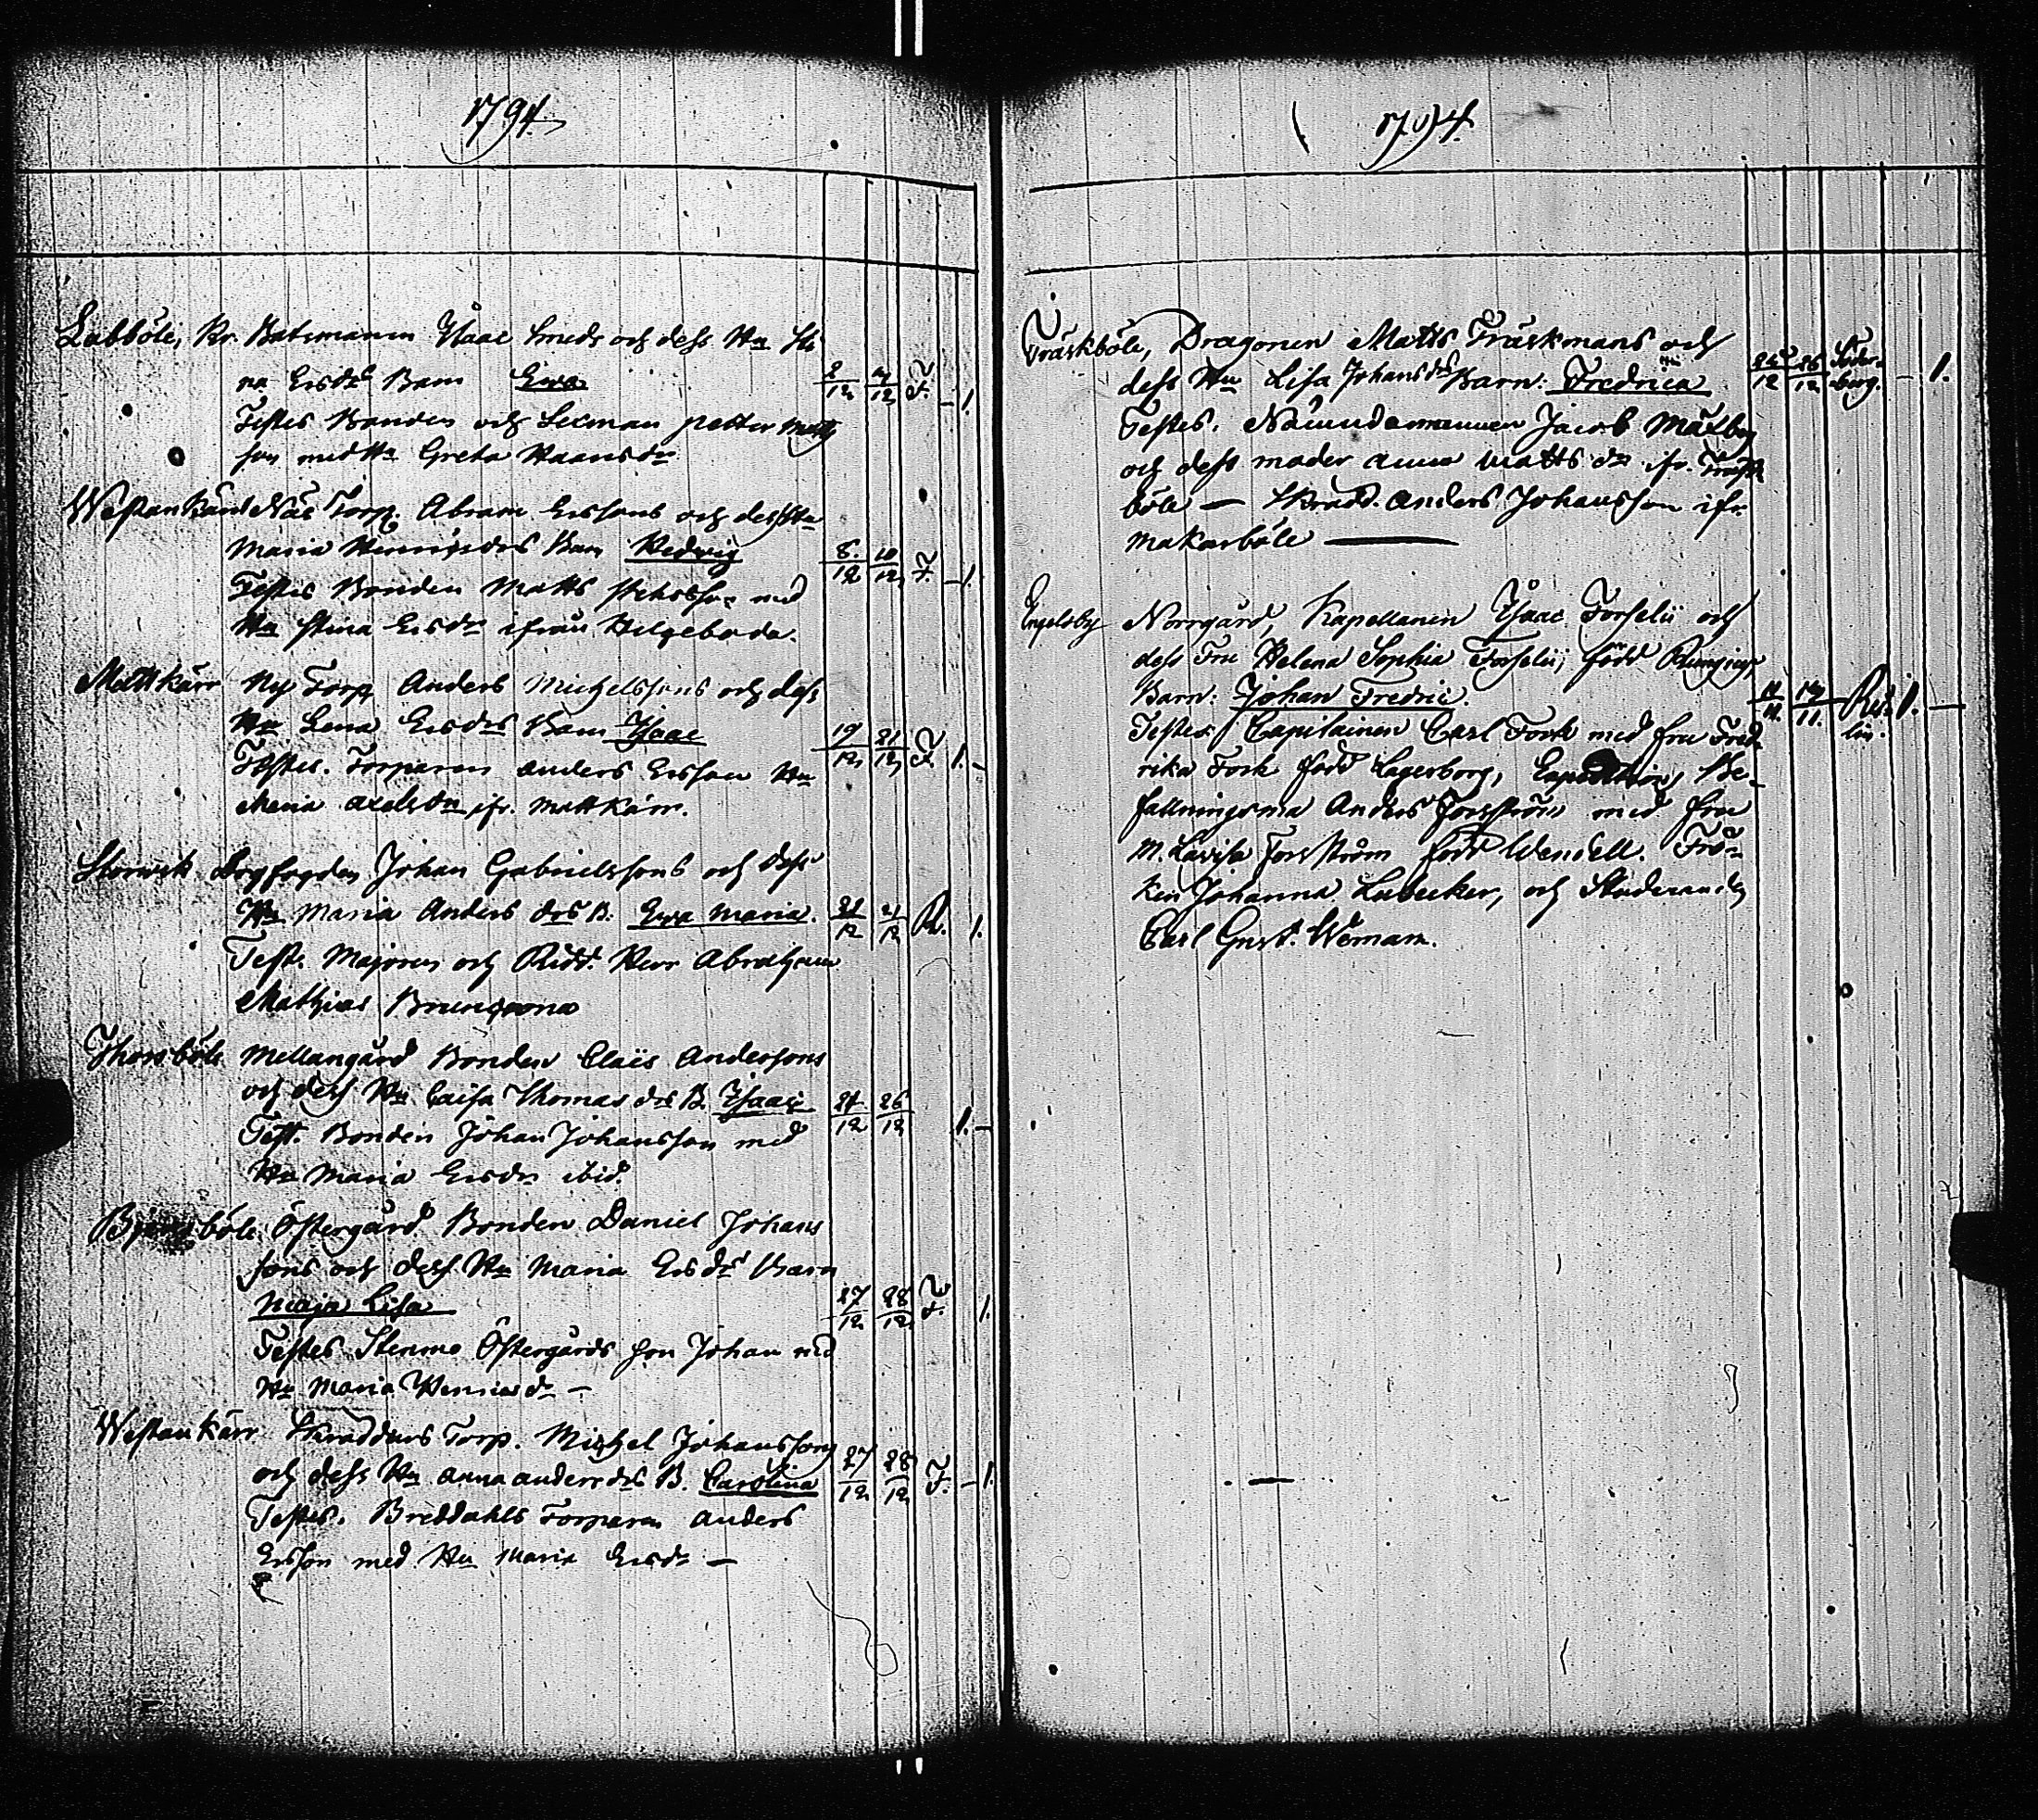 1794
Labböle, Kr. Båtsmanen Isaac Smeds och dess Hu Sti
na Ersdrs Barn Ewa 2/12 4/12 F. – 1.
Testes Bonden och Lexman petter Matts
son med Hu Greta Hansdr
Westankärr Näs Torp. Abram Erssons och dess Hu
Maria Henricsdrs Barn Hedwig 8/12 10/12 F. – 1.
Testes Bonden Matts med
Hu Stina Ersdr ifrån Helgeboda.
Mattkärr Ny Torp Anders Michelssons och dess
Hu Lena Ersdrs Barn Isaac 19/12 21/12 F. 1. –
Testes. Torparen anders Ersson Hu
Maria axelsdr ifr. Mattkärr.
Storwik Dagfogden Johan Gabrielssons och dess
Hu Maria Anders drs B. Ewa Maria. 21/12 21/12 R. 1.
Test. Majoren och Ridd. Herr Abraham
Mathias Bruncrona
Thorsböle Mellangård Bonden Claës Andersons
och dess Hu Caisa Thomas drs B. Isaac 24/12 26/12 1. –
Test. Bonden Johan Johansson med
Hu Maria Ersdr ibid.
böle Östergård Bonden Daniel Johans
sons och dess Hu Maria Ersdrs Barn
Maja Lisa 27/12 28/12 F. 1.
Testes Stenmo Östergårds son Johan med
Hu Maria Henricsdr –
Westankärr Skraddars Torp. Michel Johanssons
och dess Hu anna anders drs B. Carolina 27/12 28/12 F. – 1.
Testes. Breddahls Torparen anders
Ersson med Hu Maria Ersdr –
1794.
Träskböle, Dragonen Matts Träskmans och
dess Hu Lisa Johansdrs Barn: Fredrica 26/12 – 1.
Testes. Nämndemannen Jacob
och dess moder anna Matts dr ifr. Träsk
böle – Skradd. Anders Johansson ifr.
Makarböle —
Engelsby Norrgård, Kapellanen Isaac Forselii och
dess Fru Helena Sophia Forselii, född
Barn: Johan Fredric. 11/11. 14/11. 1. –
Testes Capitainen Carl Fock med fru Fred
rika Fock född Lagerborg, Be-
fallningsma Anders Forsström med fru
M. Lovisa Forsström född Wendell. Frö-
ken Johanna Lubecker, och Studeranden
Carl Gust. Weman.